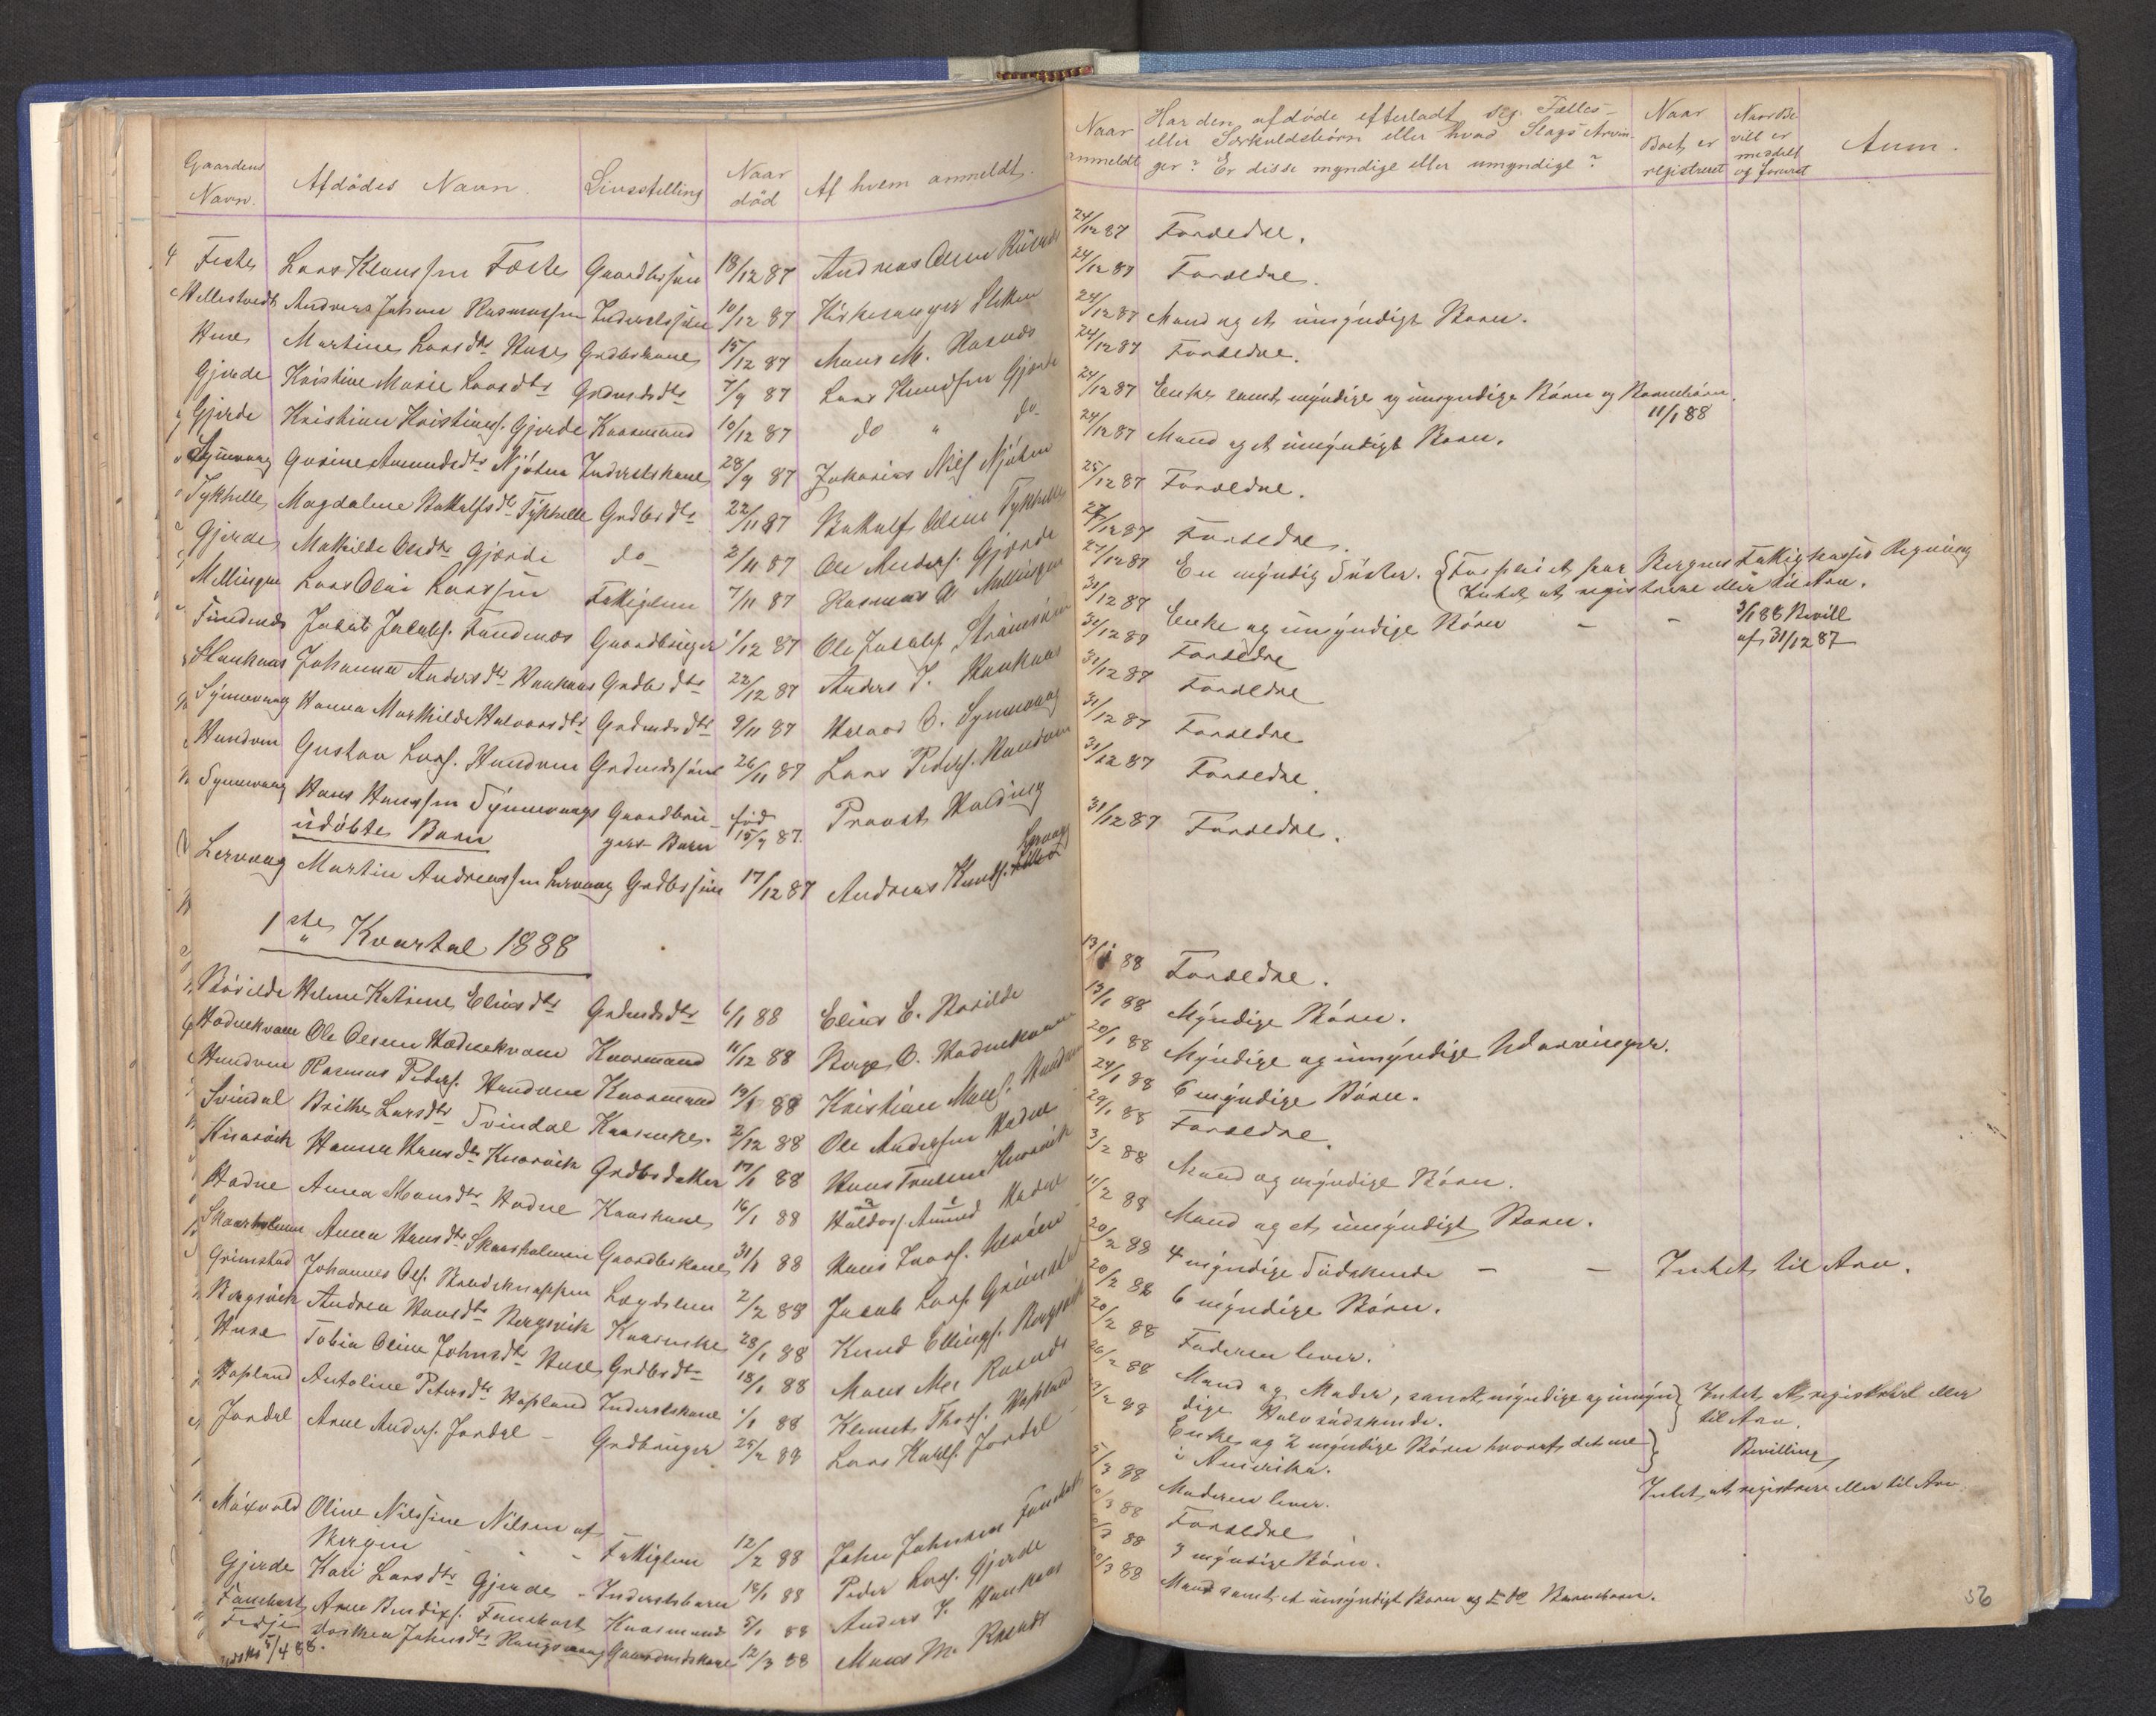 Gaardens Navn. | Afdødes Navn. | Livsstilling | Naar død | Af hvem anmeldt.
Feste | Lars Klaussen Feste | Gaardbrssøn | 18/12 87 | Andreas Olsen
Mellestvedt | Andreas Johan Rasmussen | Inderstssøn | 10/12 87 | Kirkesanger
Huse | Martine Larsdtr Huse | Grdbrskone | 15/12 87 | Mons M.
Gjerde | Kristine Marie Larsdtr | Grdmdsdtr | 7/9 87 | Lars Knudsen Gjerde
Gjerde | Kristian Kristians. Gjerde | Kaarmand | 10/12 87 | do " do
Synnevaag | Gurine Amundsdtr Njøten | Inderstskone | 28/9 87 | Zakarias Nils Njøten
Tykhelle | Magdalene Botholfsdtr Tykhelle | Grdbrdtr | 22/11 87 | Botholf Olsen Tykhelle
Gjerde | Mathilde Olsdtr Gjærde | do | 2/11 87 | Ole Anders. Gjærde
Mellingen | Lars Olai Larssen | Fattiglem | 7/11 87 | Rasmus A. Mellingen
Fundenæs | Jakob Jakobs. Fundenæs | Gaardbruger | 1/12 87 | Ole Jakobs.
Haukaas | Johanna Andersdtr Haukaas | Grdbrdtr | 22/12 87 | Anders J. Haukaas
Synnevaag | Hanna Mathilde Halvorsdtr | Grdmdsdtr | 9/11 87 | Halvor O. Synnevaag
Hundven | Gustav Lars. Hundven | Grdmdssøn | 26/11 87 | Lars Peders. Hundven
Synnevaag | Hans Hanssen Synnevaags | Gaardbru- | fød | Provst Walding
udøbte Barn | gers Barn | 15/9 87.
Lervaag | Martin Andreassen Lervaag | Grdbrssøn | 17/12 87 | Andreas Knuds. Lervaag
1ste Kvartal 1888
Børilde | Helene Katrine Eliasdtr | Grdmdsdtr | 6/1 88 | Elias E. Børilde
Hodnekvam | Ole Olsen Hodnekvam | Kaarmand | 11/12 88 | Børge O. Hodnekvam
Hundven | Rasmus Peders. Hundven | Kaarmand | 19/1 88 | Kristian Mons. Hundven
Svindal | Brithe Larsdtr Svindal | Kaarenke. | 2/12 88 | Ole Anderssen Hodne
Knarvik | Hanna Hansdtr Knarvik | Grdbrdatter | 17/1 88 | Hans Trulsen Knarvik
Hodne | Anna Monsdtr Hodne | Kaarkone | 16/1 88 | Haldors. Amund Hodne
Skaarholmen | Anna Hansdtr Skaarholmen | Gaardbrskone | 31/1 88 | Hans Lars.
Grimstad | Johannes Ols. | Lægdslem | 2/2 88 | Jakob Lars. Grimstad
Bergsvik | Andrea Hansdtr Bergsvik | Kaarenke | 28/1 88 | Knud Ellings. Bergsvik
Huse | Tobia Oline Johnsdtr Huse | Grdbrdtr | 18/1 88 | Mons M.
Hopland | Antoline Petersdtr Hopland | Inderstskone | 1/1 88 | Klemet Thors. Hopland
Jordal | Arne Anders. Jordal | Grdbruger | 25/2 88 | Lars Karls. Jordal
Maxvold | Oline Nilssine Nilsen af
Bergen | Fattiglem | 12/2 88 | John Johnsen
Gjerde | Kari Larsdtr Gjerde | Inderstsbarn | 18/1 88 | Peder Lars. Gjerde
Fammestad | Arne Bendixs. | Kaarmand | 5/1 88 | Anders J. Haukaas
Fedje | Dorthea Johnsdtr | Gaardmdskone | 12/3 88 | Mons M.
5/4 88.
Naar anmeldt | Har den afdøde efterladt sig Fælles-
eller Særkuldsbørn eller hvad Slags Arvin-
ger? Er disse myndige eller umyndige? | Naar Boet er registreret | Naar Bevill er meddelt og | Anm.
24/12 87 | Forældre.
24/12 87 | Forældre.
24/12 87 | Mand og et umyndigt Barn.
24/12 87 | Forældre.
24/12 87 | Enke samt myndige og umyndige Børn og Barnebørn. | 11/1 88
24/12 87 | Mand og et umyndigt Barn.
25/12 87 | Forældre.
27/12 87 | Forældre.
27/12 87 | En myndig Søster. | Forpleiet paa Bergens Fattigkasses Regning
Intet at registrere eller til Arv.
31/12 87 | Enke og umyndige Børn | 3/1 88 Bevill
af 31/12 87
31/12 87 | Forældre
31/12 87 | Forældre
31/12 87 | Forældre
31/12 87 | Forældre.
31/12 87 | Forældre.
13/1 88 | Forældre.
13/1 88 | Myndige Børn.
20/1 88 | Myndige og umyndige Udarvinger.
24/1 88 | 6 myndige Børn.
29/1 88 | Forældre.
3/2 88 | Mand og myndige Børn.
11/2 88 | Mand og et umyndigt Barn.
20/2 88 | 4 myndige Sødskende | Intet til Arv.
20/2 88 | 6 myndige Børn.
20/2 88 | Faderen lever.
26/2 88 | Mand og Moder, samt myndige og umyn- | Intet at registrere eller
dige Halvsødskende. | til Arv.
Enke og 2 myndige Børn hvoraf det ene | Bevilling
i Amerika.
5/3 88 | Moderen lever. | Intet at registrere eller til Arv
10/3 88 | Forældre
88 | 3 myndige Børn.
20/3 88 | Mand samt et umyndigt Barn og Barnebarn.
56